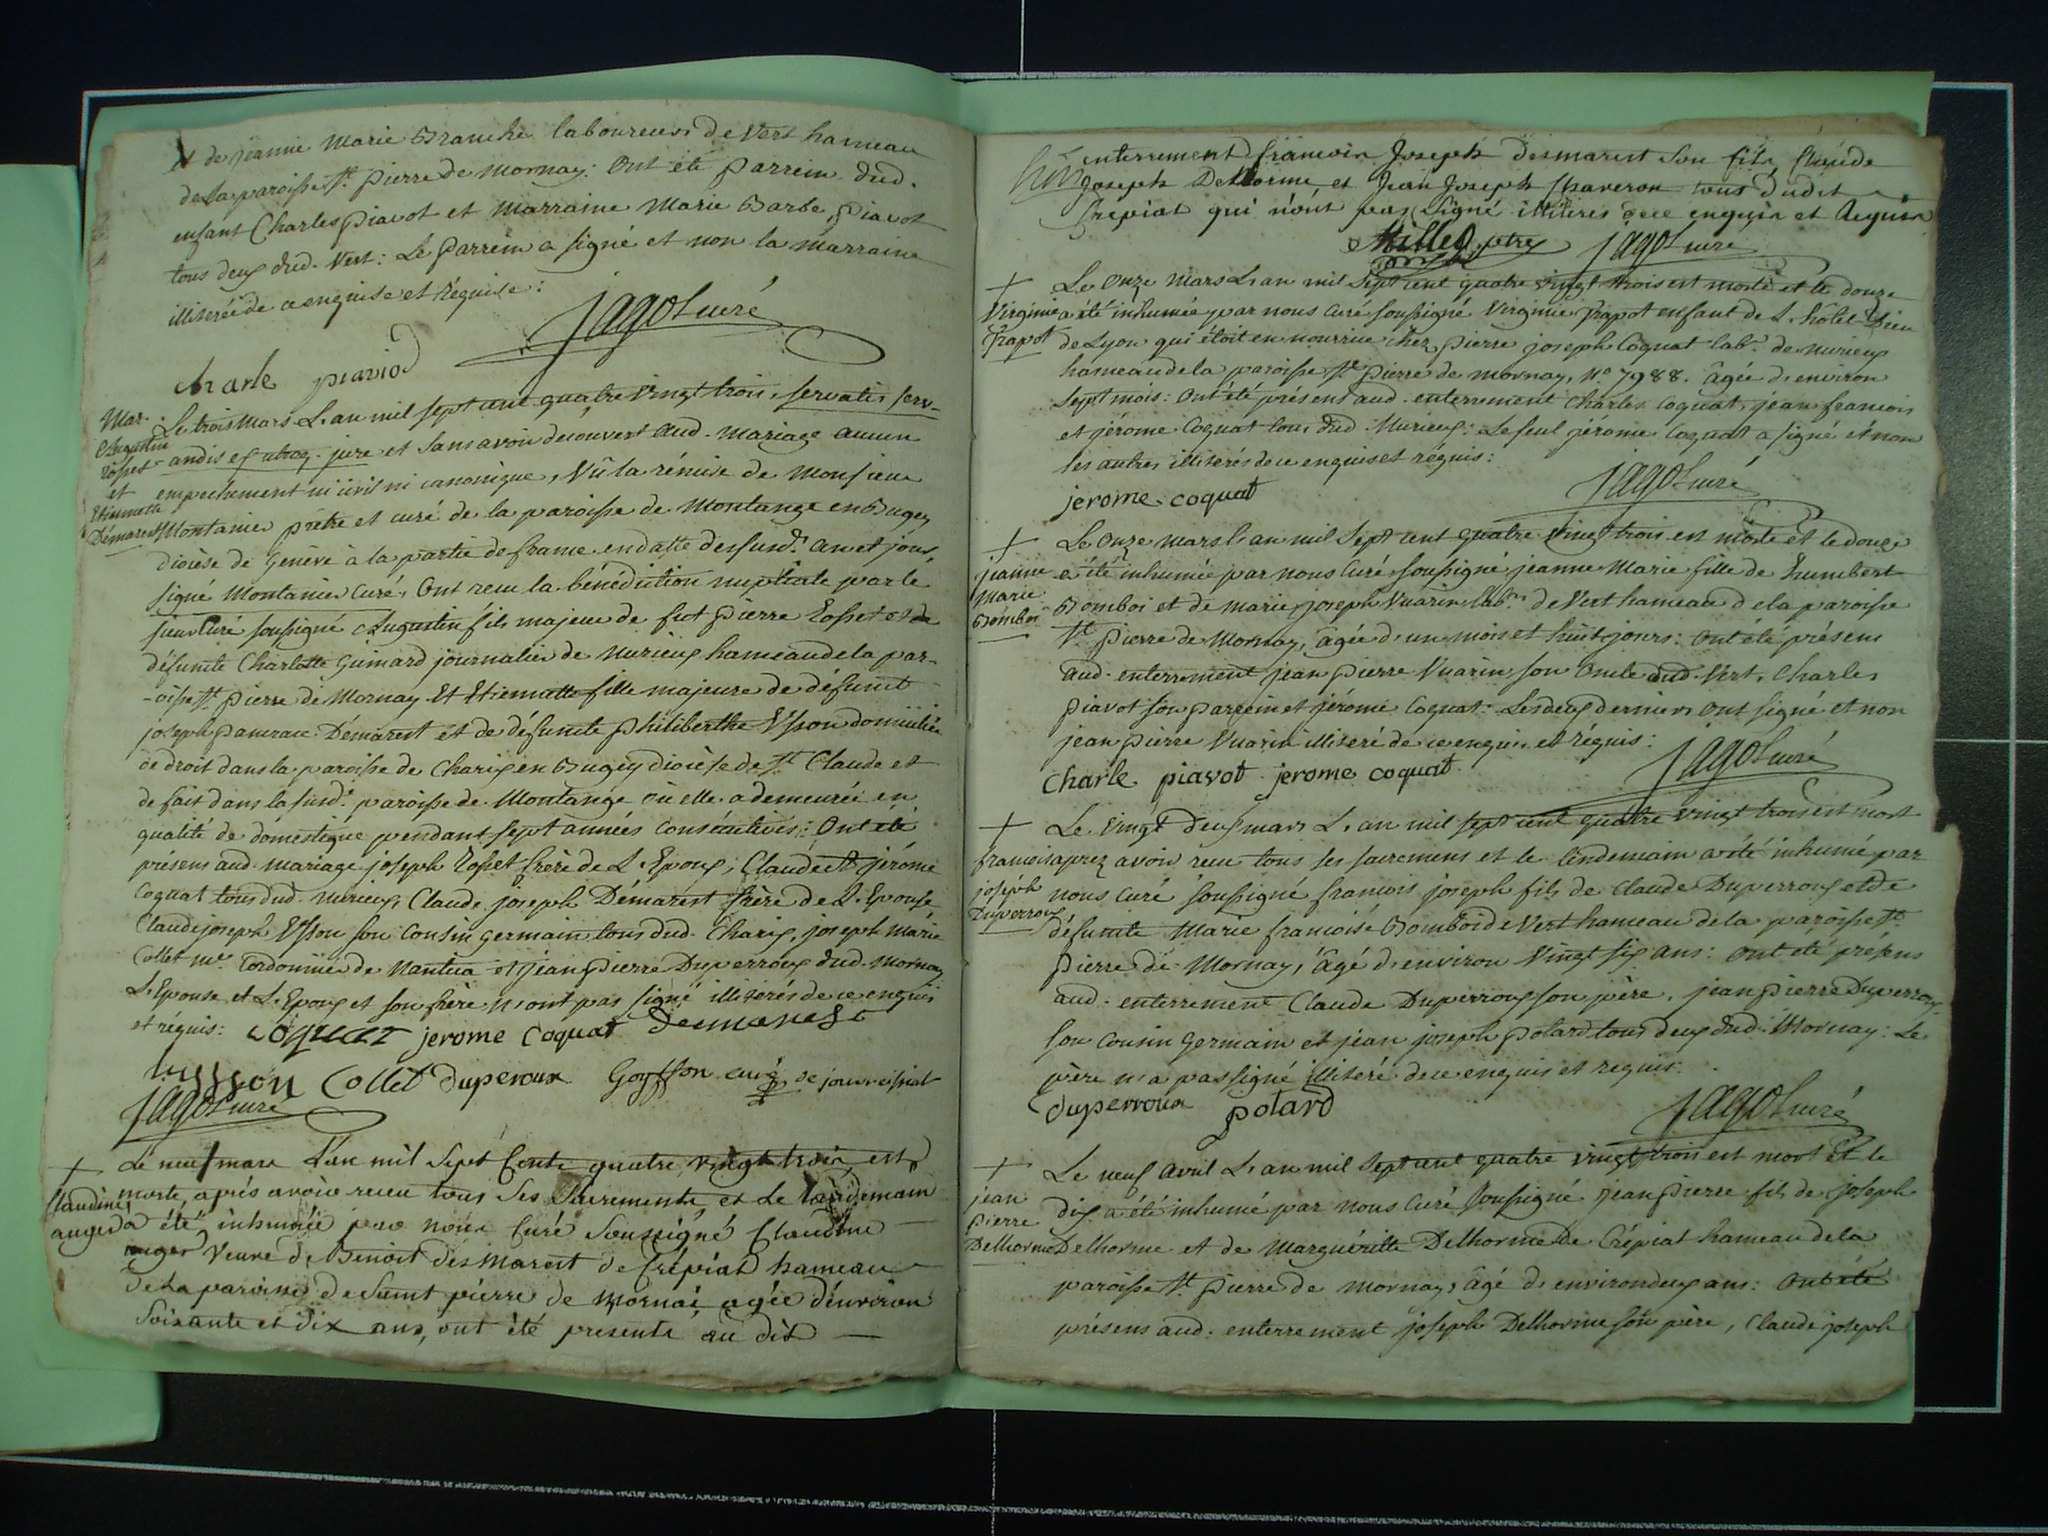 et de jeanne Marie Branche laboureurs de Vert hameau
de la paroisse St. pierre de Mornay: Ont été parrein dud.
enfant Charles piavot et Marraine Marie Barbe piavot
tous deux dud. Vert: Le parrein a signé et non la marraine
illiterée de ce enquise et réquise:
jagot curé
charle piavod
Mar.
Augustin
Rosset
et
Etiennette
Démarest
Le trois Mars L'an mil sept cent quatre vingt trois, servatis serv-
andis ex utroq. jure et sans avoir decouvert aud. Mariage aucun
empechement ni civil ni canonique, Vû la rémise de Monsieur
Montanier prêtre et curé de la paroisse de Montange en Bugey
diocèse de Genève à la partie de france en datte des susd. an et jour,
signé Montanier Curé, Ont reçu la bénédiction nuptiale par le
sieur Curé soussigné Augustin fils majeur de fut pierre Rosset et de
défunte Charlotte Guimard journalier de Nurieux hameau de la par-
-oisse St. pierre de Mornay Et Etiennette fille majeure de défunt
joseph pancrace Démarest et de défunte philiberthe Usson domiciliée
de droit dans la paroisse de Charix en Bugey diocèse de St. Claude et
de fait dans la susd. paroisse de Montange où elle a demeurée en
qualité de domestique pendant sept années consécutives: Ont été
présens aud. mariage joseph Rosset frère de L'Epoux, Claude et jérôme
Coquat tous dud. Nurieux, Claude joseph Démarest frère de L'Epouse
Claude joseph Usson son Cousin germain tous dud. Charix, joseph Marie
Collet me. Cordonnier de Nantua et jean pierre Duperroux dud. Mornay
L'Epouse et L'Epoux et son frère n'ont pas signé illiterés de ce enquis
et réquis: Coquat jerome Coquat Desmarest
husson Collet duperoux Goyffon curé de jourressiat
jagot curé
+
Claudine
auger
Le neuf mars L'an mil Sept Cents quatre vingt trois, est
morte, aprés avoir receu tous Ses Sacrements, et Le Lendemain
a été inhumée par nous Curé Soussigné Claudine
auger Veuve de Benoit desmarest de Crépiat hameau
de La paroisse de Saint pierre de Mornai agée d'environ
Soixante et dix ans, ont été presents au dit
enterrement françois Joseph desmarest son fils, Claude
Joseph Delhorme, et Jean Joseph Chaveron tous dudit
Crepiat qui n'ont pas signé illitérés de ce enquis et Requis
Millet ptre jagot curé
+
Virginie
frapot
Le Onze Mars L'an mil sept cent quatre vingt trois est morte et le douze
a été inhumée par nous Curé soussigné Virginie frapot enfant de L'hôtel-Dieu
de Lyon qui étoit en nourrice chez pierre joseph Coquat labr. de Nurieux
hameau de la paroisse St. pierre de Mornay, No. 7988. âgée d'environ
sept mois: Ont été présens aud. enterrement Charles Coquat, jean francois
et jérome Coquat tous dud. Nurieux: Le seul jérome Coquat a signé et non
les autres illiterés de ce enquis et réquis:
jerome coquat
jagot curé
+
jeanne
Marie
Bomboi
Le Onze Mars l'an mil Sept cent quatre vingt trois est morte et le douze
a été inhumée par nous Curé soussigné jeanne Marie fille de humbert
Bomboi et de marie joseph Vuarin labrs. de Vert hameau de la paroisse
St. pierre de Mornay, âgée d'un mois et huit jours: Ont été présens
aud. enterrement jean pierre Vuarin son Oncle dud. Vert, Charles
piavot son parrein et jérôme Coquat: Les deux derniers ont signé et non
jean pierre Vuarin illiteré de ce enquis et réquis:
Charle piavot jerome coquat
jagot curé
+
francois
joseph
Duperroux
Le Vingt deux mars L'an mil sept cent quatre vingt trois est mort
aprez avoir reçu tous ses sacremens et le lendemain a été inhumé par
nous Curé soussigné françois joseph fils de Claude Duperroux et de
défunte Marie françoise Bomboi de Vert hameau de la paroisse St.
pierre de Mornay, âgé d'environ Vingt six ans: Ont été présens
aud. enterrement Claude Duperroux son père, jean pierre Duperroux
son Cousin Germain et jean joseph potard tous deux dud. Mornay: Le
père n'a pas signé illiteré de ce enquis et requis:
duperroux potard
jagot curé
+
jean
pierre
Delhorme
Le neuf Avril L'an mil sept cent quatre vingt trois est mort Et le
dix a été inhumé par nous Curé soussigné jean pierre fils de joseph
Delhorme et de Marguéritte Delhorme de Crépiat hameau de la
paroisse St. pierre de Mornay, âgé d'environ deux ans: Ont été
présens aud. enterrement joseph Delhorme son père, Claude joseph